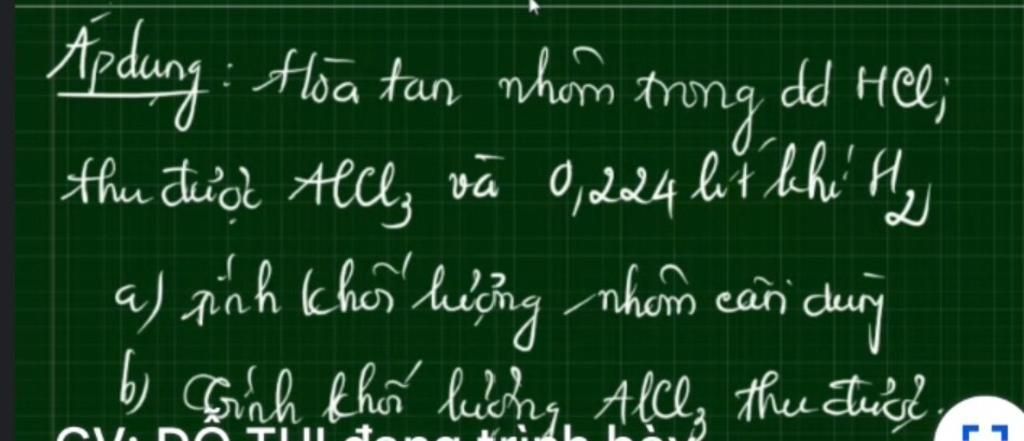 Áp dụng: Hòa tan nhôm trong dd HCl;
thu được AlCl₃ và 0,224 lít khí H₂
a) Tính khối lượng nhôm cần dùng
b) Tính khối lượng AlCl₃ thu được.
GV: ĐỖ THI đang trình bày